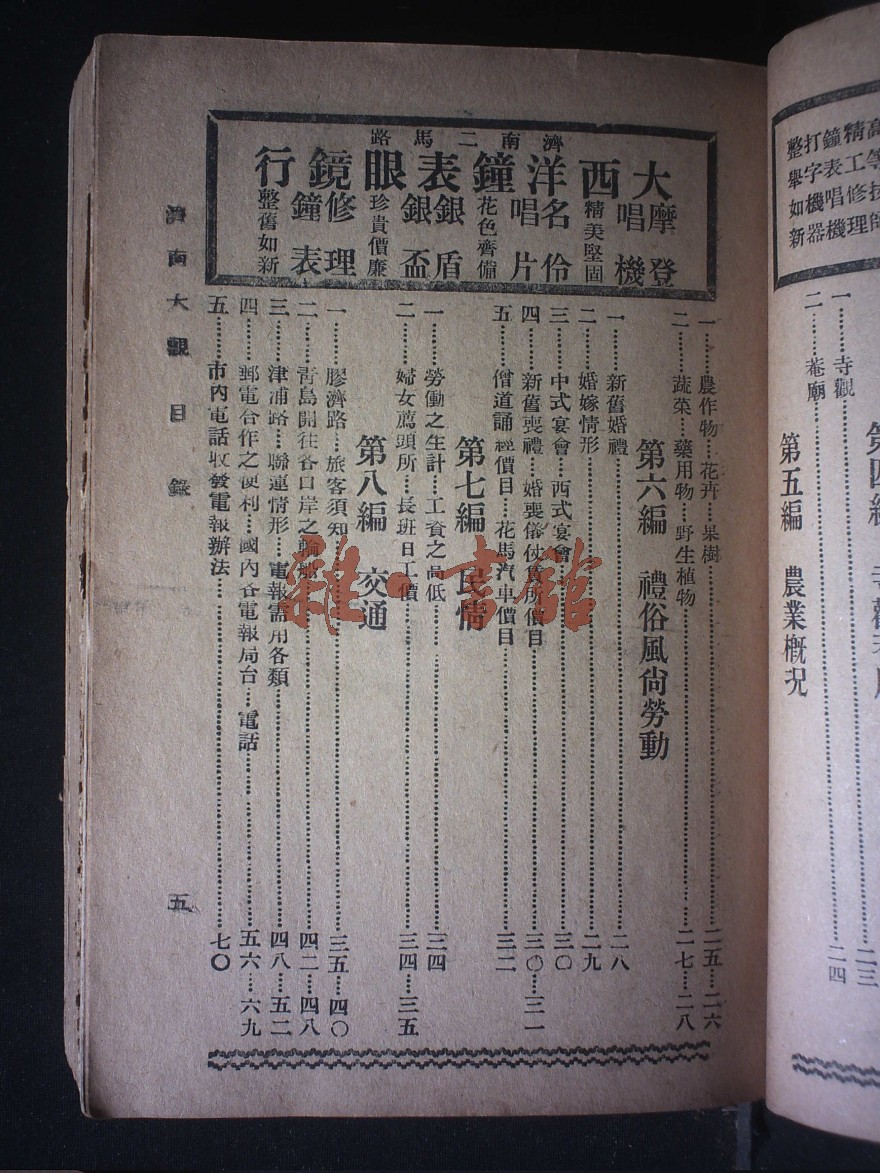 高等技師
精工修理
鐘表唱機
打字機器
整舉如新
一……寺觀……二三
二……菴廟……二四
第五編　農業概況
濟南二馬路
大西洋鐘表眼鏡行
摩登唱機
精美堅固
名伶唱片
花色齊備
銀盾銀盃
珍貴價廉
修理鐘表
整舊如新
一……農作物……花卉……果樹……二五……二六
二……蔬菜……藥用物……野生植物……二七……二八
第六編　禮俗風尙勞動
一……新舊婚禮……二八
二……婚嫁情形……二九
三……中式宴會……西式宴會……三〇
四……新舊喪禮……婚喪儀仗賃所價目……三〇……三一
五……僧道誦經價目……花馬汽車價目……三二
第七編　民情
一……勞働之生計……工資之高低……三四
二……婦女薦頭所……長班日工價……三四……三五
第八編　交通
一……膠濟路……旅客須知……三五……四〇
二……青島開往各口岸之輪船……四二……四八
三……津浦路……聯運情形……電報需用各類……四八……五二
四……郵電合作之便利……國內各電報局台……電話……五六……六九
五……市內電話收發電報辦法……七〇
濟南大觀　目錄
五
雜·書館